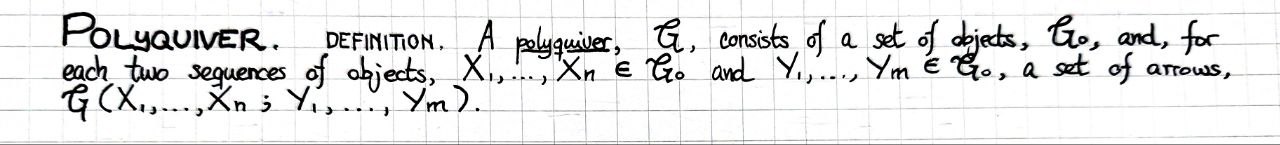 POLYQUIVER. DEFINITION. A polyquiver, G, consists of a set of objects, G₀, and, for
each two sequences of objects, X₁,..., Xn ∈ G₀ and Y₁,..., Ym ∈ G₀, a set of arrows,
G(X₁,...,Xn ; Y₁,..., Ym).